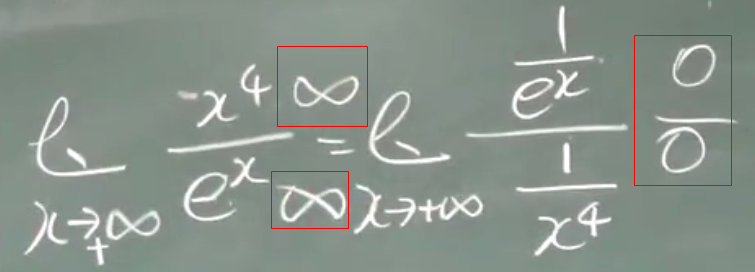 lim_{x→+∞} x⁴/eˣ ∞/∞ = lim_{x→+∞} (1/eˣ)/(1/x⁴) 0/0